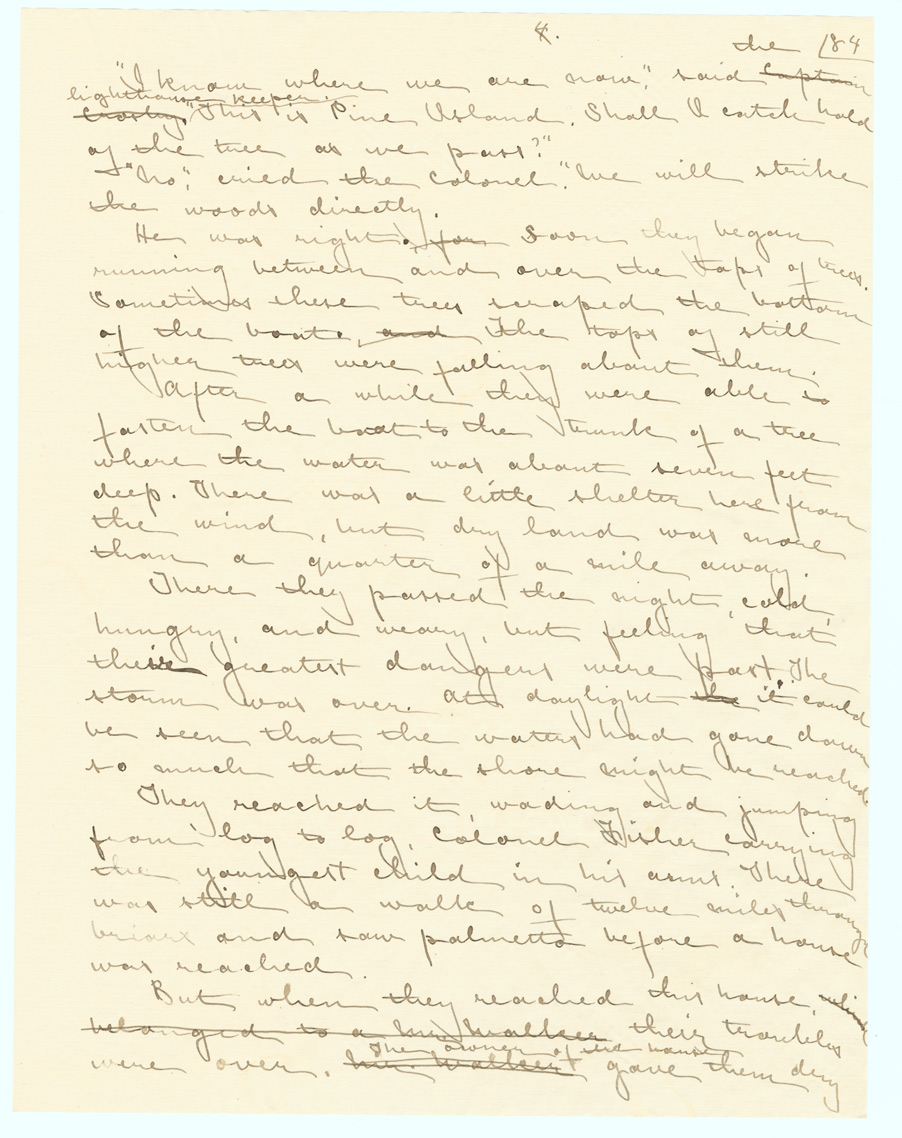 4.
184
"I know where we are now", said Captain the
Crosby. lighthouse keeper. "This is Pine Island. Shall I catch hold
of the tree as we pass?"
"No", cried the Colonel. "We will strike
the woods directly.
He was right, for Soon they began
running between and over the tops of trees.
Sometimes these trees scraped the bottom
of the boats, and The tops of still
higher trees were falling about them.
After a while they were able to
fasten the boat to the trunk of a tree
where the water was about seven feet
deep. There was a little shelter here from
the wind, but dry land was more
than a quarter of a mile away.
There they passed the night, cold,
hungry, and weary, but feeling that
their greatest dangers were past. The
storm was over. At daylight the it could
be seen that the waters had gone down
so much that the shore might be reached.
They reached it, wading and jumping
from log to log, Colonel Fisher carrying
the youngest child in his arms. There
was still a walk of twelve miles through
briars and saw palmetto before a house
was reached.
But when they reached this house, which
belonged to a Mr. Walker their troubles
were over. Mr. Walker The owner of the house gave them dry